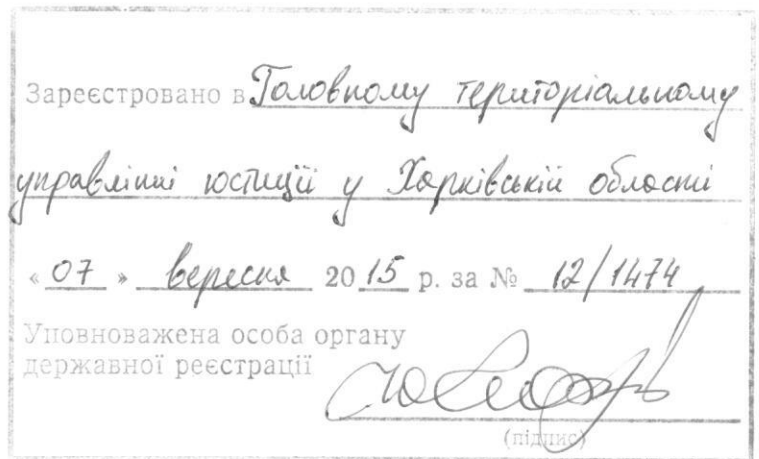 Зареєстровано в Головному територіальному
управлінні юстиції у Харківській області
« 07 » вересня 20 15 р. за № 12/1474
Уповноважена особа органу
державної реєстрації
(підпис)